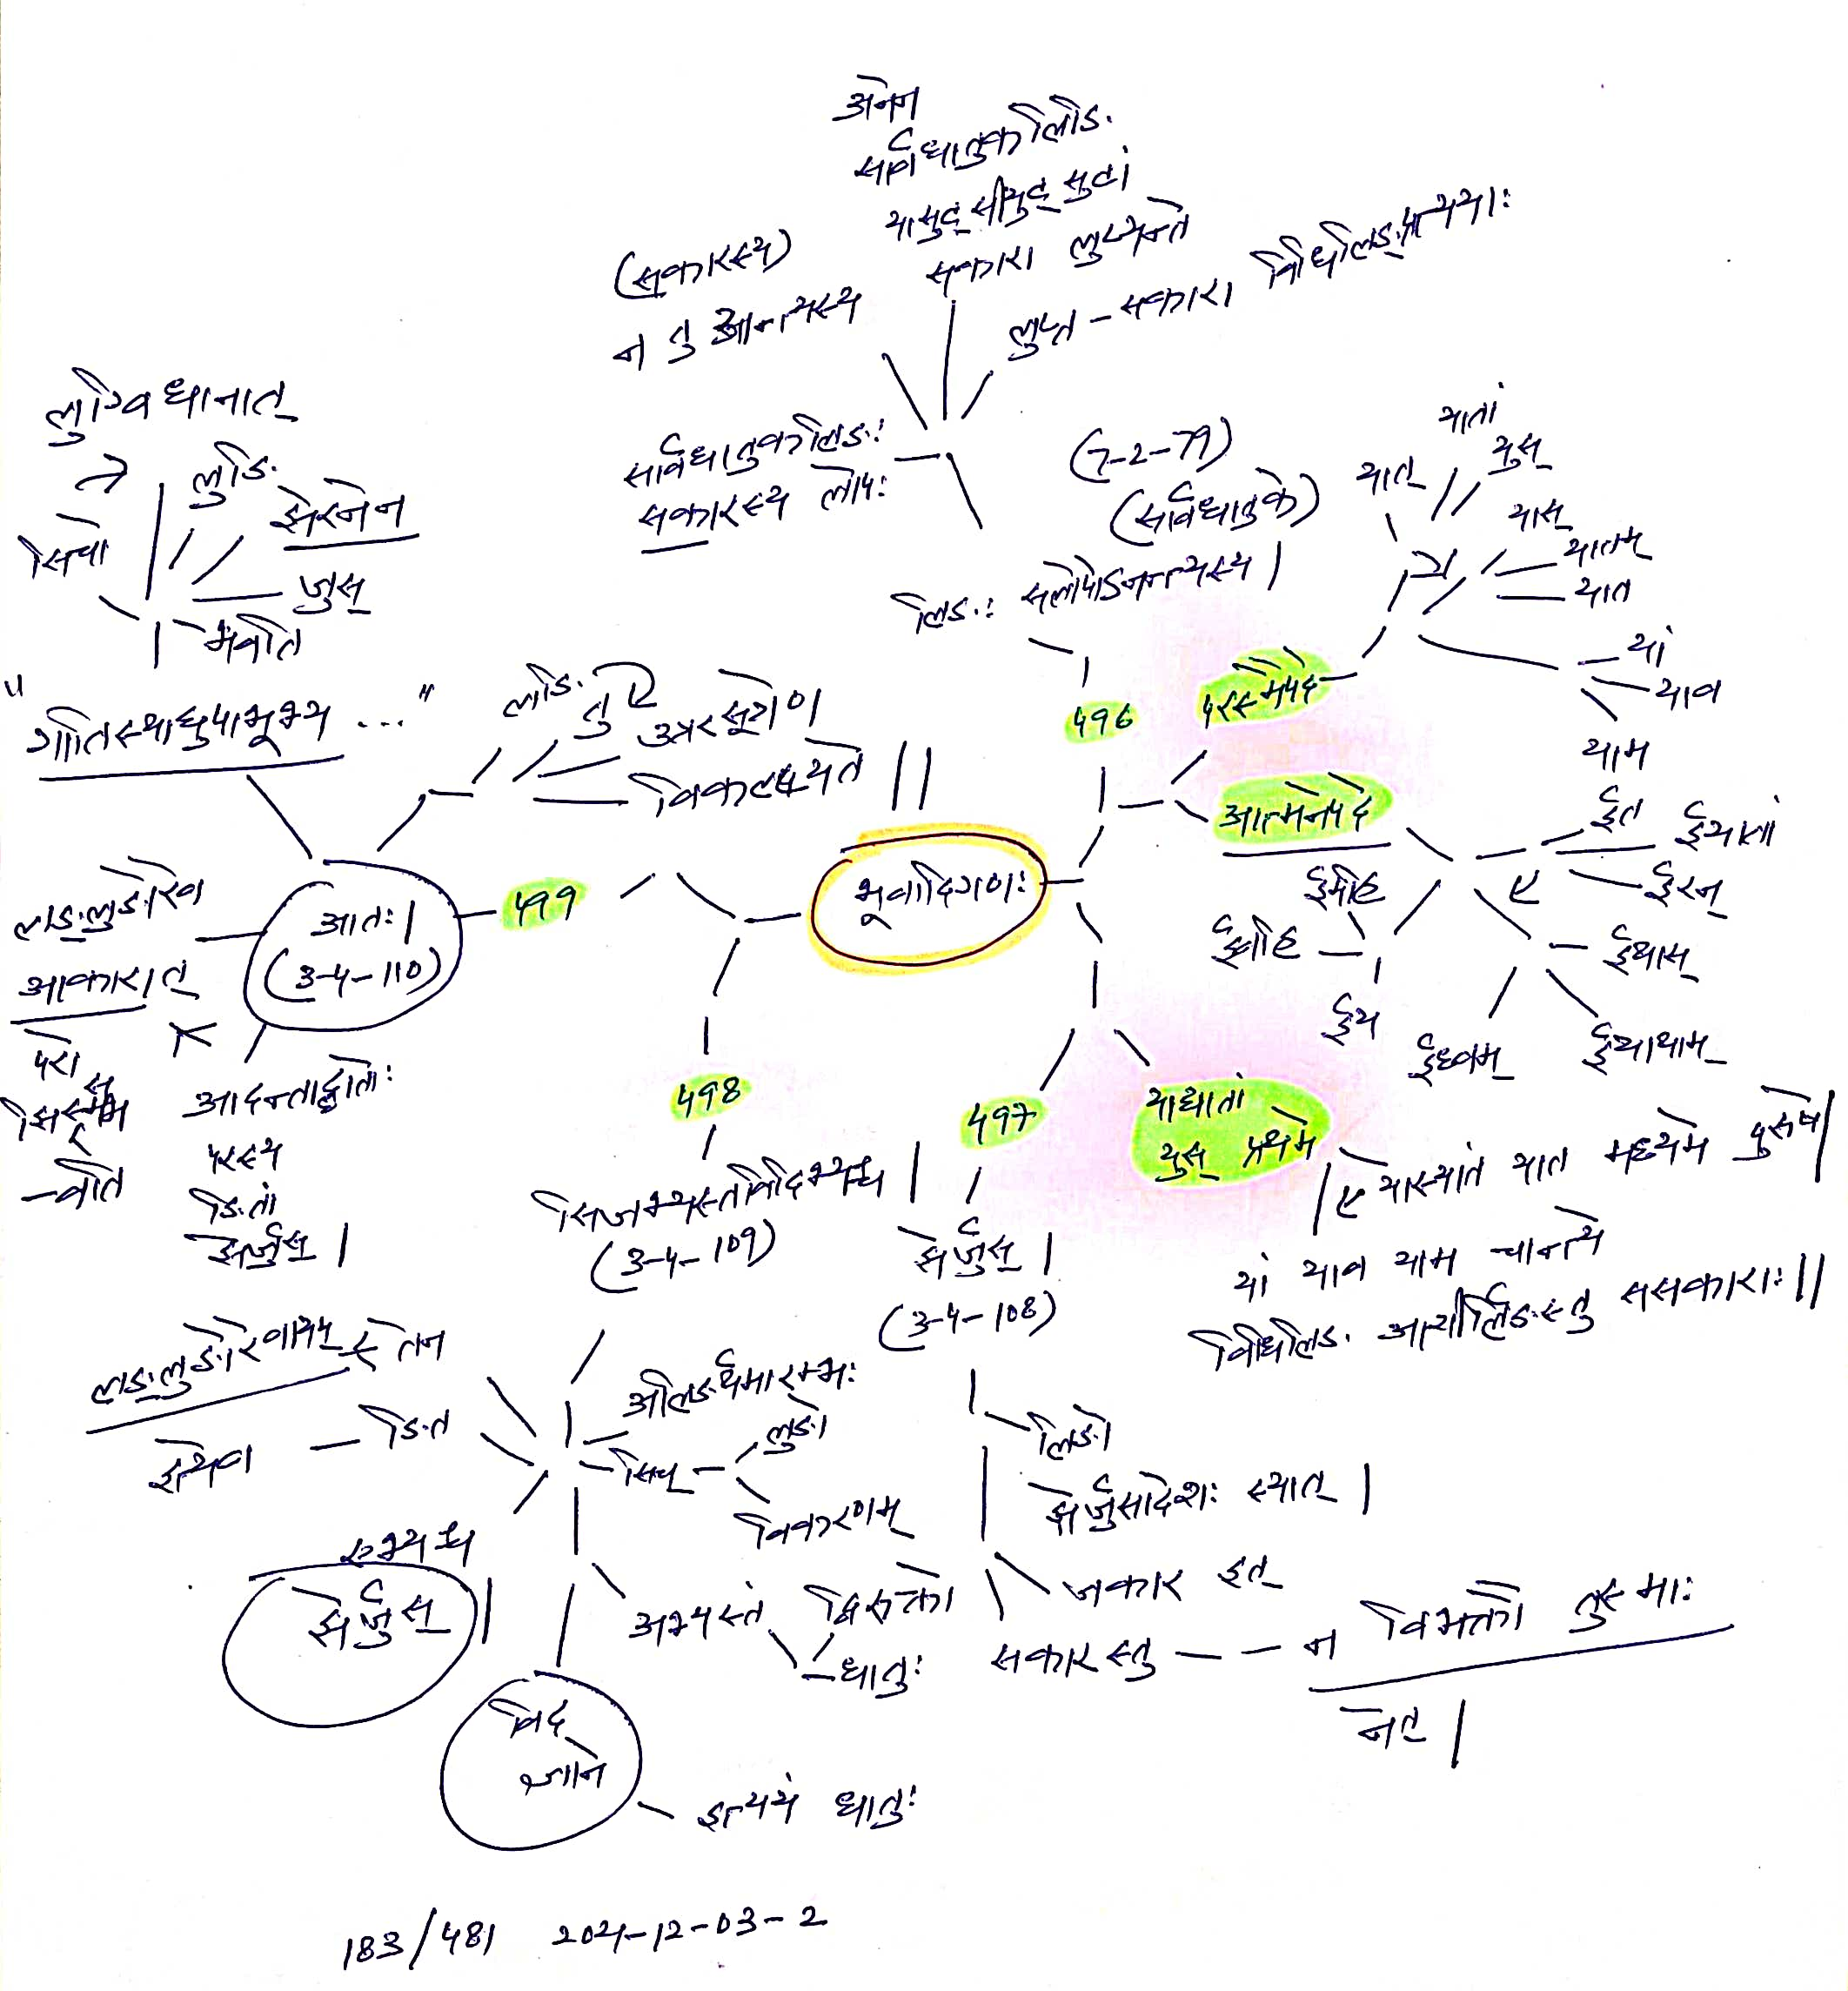 अनेन
सार्वधातुकलिङि
यासुट् सीयुट् सुटां
सकारा लुप्यन्ते
(सकारस्य)
न तु अन्त्यस्य
लुप्त - सकारा विधिलिङ्प्रत्ययाः
सार्वधातुकलिङः
सकारस्य लोपः
(7-2-79)
(सार्वधातुके)
लिङः सलोपोऽनन्त्यस्य |
496
परस्मैपदे
यात्
यातां
युस्
यास्
यातम्
यात
यां
याव
याम
आत्मनेपदे
ईत
ईयातां
ईरन्
ईथास्
ईयाथाम्
ईध्वम्
ईय
ईवहि
ईमहि
लुग्विधानात्
सिचो
लुङि
झेरनेन
जुस्
भवति
"गातिस्थाघुपाभूभ्य ..."
लङि
तु
उत्तरसूत्रेण
विकल्प्यते ||
भूवादिगणः
499
आतः |
(3-4-110)
लङ्लुङोरेव
आकारात्
परो
आदन्ताद्धातोः
परस्य
ङितां
झेर्जुस् |
498
सिजभ्यस्तविदिभ्यश्च |
(3-4-109)
497
झेर्जुस् |
(3-4-108)
यायातां
युस् प्रथमे
यास्यातं यात मध्यमे पुरुषे |
यां याव याम चान्त्ये
विधिलिङि आशीर्लिङस्तु ससकाराः ||
लङ्लुङोरेवायम्
तेन
ङित
अलिङर्थमारम्भः
सिच्
लुङो
विकरणम्
झेर्जुस् |
अभ्यस्तं
द्विरुक्तो
धातुः
विद
ज्ञाने
इत्ययं धातुः
लिङो
झेर्जुसादेशः स्यात् |
जकार इत्
सकारस्तु - - न विभक्तौ तुस्माः
नेत् |
183/481 2021-12-03-2